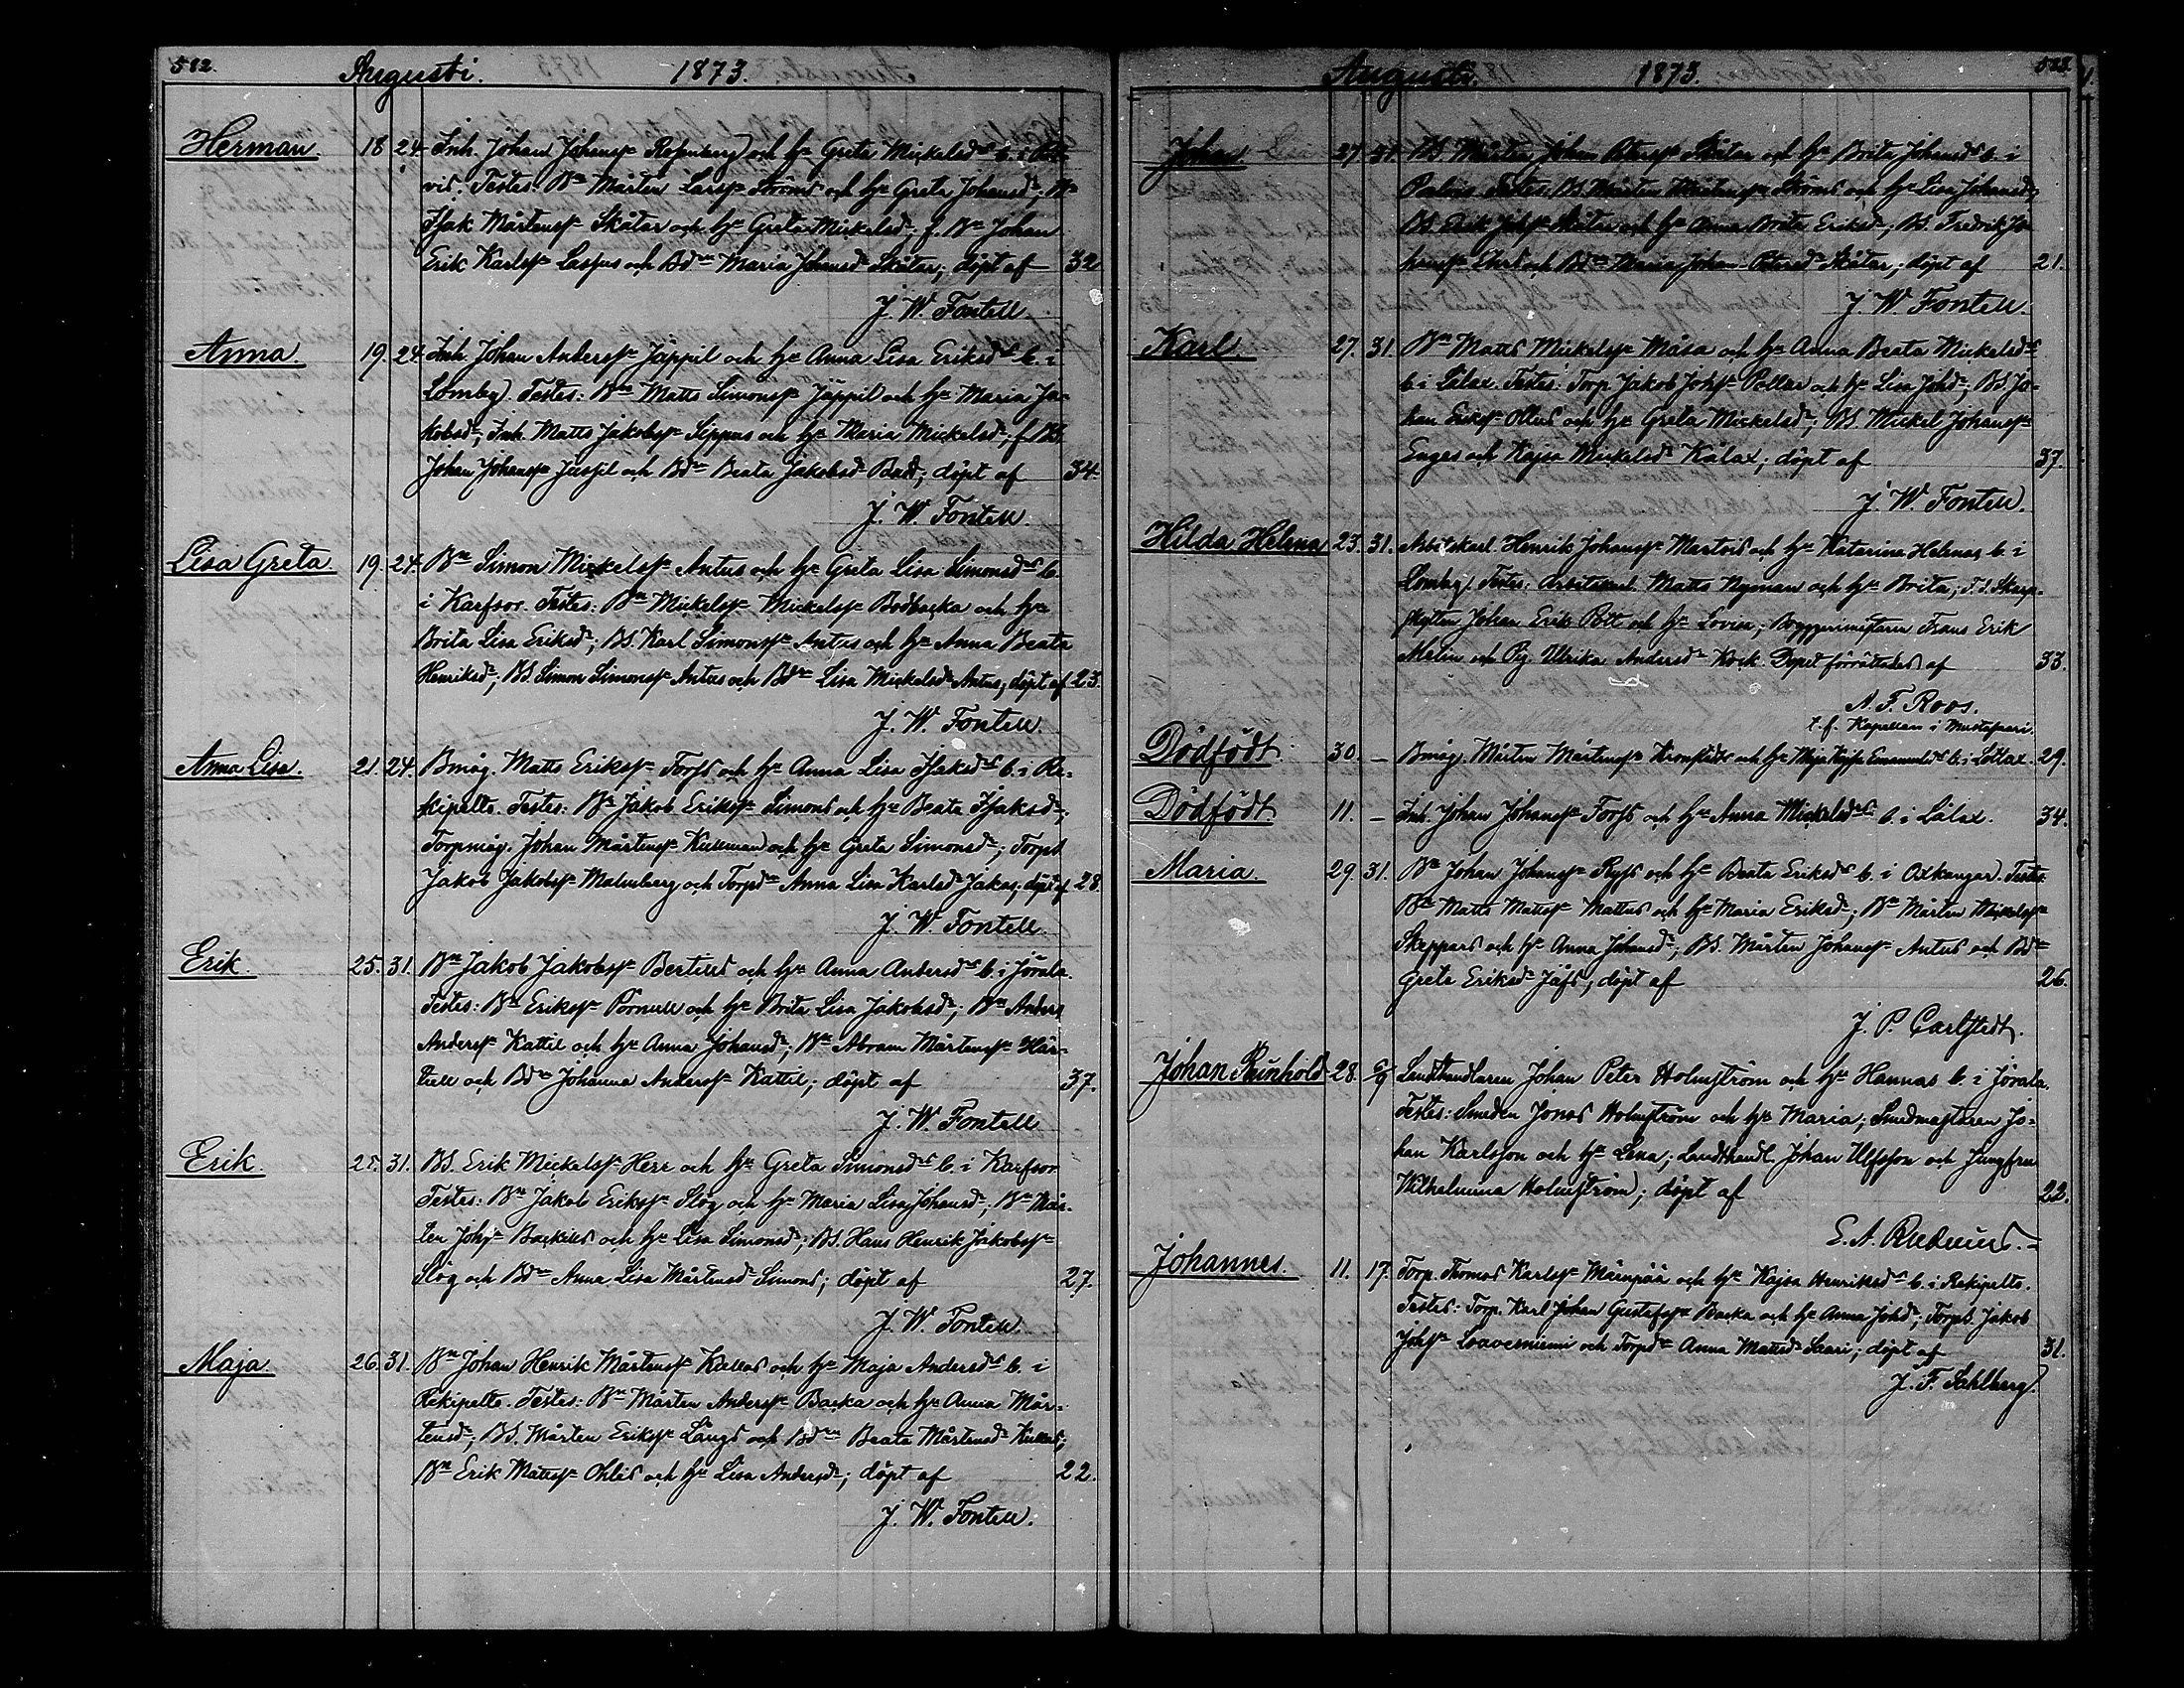 512.
Augusti. 1873.
Herman 18 24. Inh. Johan Johanss Rosenberg och h: Greta Mickelsds b. i
vis. Testes: Bn Mårten Larss Ströms och h: Greta Johansd; Bn
Isak Mårtenss Skåtar och h: Greta Mickelsd; f. Bn Johan
Erik Karlss Laspus och Bdn Maria Johansd Skåtar; döpt af 32
J. W. Fontell.
Anna. 19. 24. Inh. Johan Anderss Jäppil och h: Anna Lisa Eriksds b. i
Lomby. Testes: Bn Matts Simonss Jäppil och h: Maria Ja-
kobsd; Inh. Matts Jakobss Sippus och h: Maria Mickelsd; f. BS.
Johan Johanss och Bdn Beata Jakobsd; döpt af 34.
J. W. Fontell.
Lisa Greta 19. 24. Bn Simon Mickelss Antus och h: Greta Lisa Simonsds b.
i Karfsor. Testes: Bn Mickelss Mickelss Bodbacka och h:
Brita Lisa Eriksd; BS. Karl Simonss Antus och h: Anna Beata
Henriksd; BS. Simon Simonss Antus och Bdn Lisa Mickelsd Antus; döpt af 23.
J. W. Fontell.
Anna Lisa. 21. 24. Bmåg. Matts Erikss Forss och h: Anna Lisa Isaksds b. i Re-
kipelto. Testes: Bn Jakob Erikss Simons och h: Beata Isaksd;
Torpmåg. Johan Mårtenss Kullman och h: Greta Simonsd; Torps.
Jakob Jakobss Malmberg och Torpdn Anna Lisa Karlsd Jakas; döpt af 28.
J. W. Fontell.
Erik. 25. 31. Bn Jakob Jakobss Bertills och h: Anna Andersds b. i Jörala.
Testes: Bn Erikss Pörnull och h: Brita Lisa Jakobsd; Bn Anders
Anderss Kattil och h: Anna Johansd; Bn Abram Mårtenss Här-
tull och Bdn Johanna Anderss Kattil; döpt af 37.
J. W. Fontell
Erik. 25. 31. BS. Erik Mickelss Herr och h: Greta Simonsds b. i Karfsor
Testes: Bn Jakob Erikss Slög och h: Maria Lisa Johansd; Bn Mår-
ten Johs Backlis och h: Lisa Simonsd; BS. Hans Henrik Jakobss
Slög och Bdn Anna Lisa Mårtensd Simons; döpt af 27.
J. W. Fontell.
Maja. 26. 31. Bn Johan Henrik Mårtenss Kallas och h: Maja Andersds b. i
Rekipelto. Testes: Bn Mårten Anderss Backa och h: Anna Mår-
tensd; BS. Mårten Erikss Långs och Bdn Beata Mårtensd
Bn Erik Mattss Ohlis och h: Lisa Andersd; döpt af 22.
J. W. Fontell.
Augusti. 1873. 513.
Johan 27. 31. BS. Mårten Johan Peterss Skåtar och h: Brita Johansds b. i
Palvis. Testes: BS. Mårten Mårtenss Ströms och h: Lisa Johansd;
BS. Erik Johss Skåtar och h: Anna Brita Eriksd; BS. Fredrik Jo-
hanss och Bdn Maria Johan Petersd Skåtar; döpt af 21.
J. W. Fontell.
Karl. 27. 31. Bn Matts Mickelss Måsa och h: Anna Beata Mickelsds
b. i Lålax. Testes: Torp. Jakob Johss Pollar och h: Lisa Johsd; BS. Jo-
han Erikss Ollus och h: Greta Mickelsd; BS. Mickel Johanss
Enges och Kajsa Mickelsd Kålax; döpt af 37.
J. W. Fontell.
Hilda Helena 23. 31. Arbetskarl. Henrik Johanss Martois och h: Katarina Helenas b. i
Lomby. Testes: Arbetskarl. Matts Nyman och h: Brita; F. d. Skarp-
skytten Johan Erik Pott och h: Lovisa; Bryggerimästaren Frans Erik
Melin och Pig. Ulrika Andersd Kock. Dopet förrättades af 33.
A. F. Roos.
t. f. Kapellan i Mustasaari.
Dödfödt. 30. — Bmåg. Mårten Mårtenss Kronstedt och h: Maja Kajsa Emanuelsds b. i Lötlax. 29.
Dödfödt 11. — Inh. Johan Johanss Forss och h: Anna Mickelsds b. i Lålax. 34.
Maria. 29. 31. Bn Johan Johanss Ryss och h: Beata Eriksds b. i Oxkangar. Testes:
Bn Matts Mattss Mattus och h: Maria Eriksd; Bn Mårten Mickelss
Skeppars och h: Anna Johansd; BS. Mårten Johanss Antus och Bdn
Greta Eriksd Jåfs; döpt af 26.
J. P. Carlstedt.
Johan Reinhold 28. 6/9 Landthandlaren Johan Peter Holmström och h: Hannas b. i Jörala.
Testes: Smeden Jonas Holmström och h: Maria; Smedmästaren Jo-
han Karlsson och h: Lena; Landthandl. Johan Ulfsson och Jungfru
Wilhelmina Holmström; döpt af 22.
E. A. Rudnäus.
Johannes. 11. 17. Torp. Thomas Karlss Mäenpää och h: Kajsa Henriksds b. i Rekipelto.
Testes: Torp. Karl Johan Gustafss Backa och h: Anna Johsd; Torps. Jakob
Johss Loavesniemi och Torpdn Anna Mattsd Saari; döpt af 31.
J. F. Sahlberg.